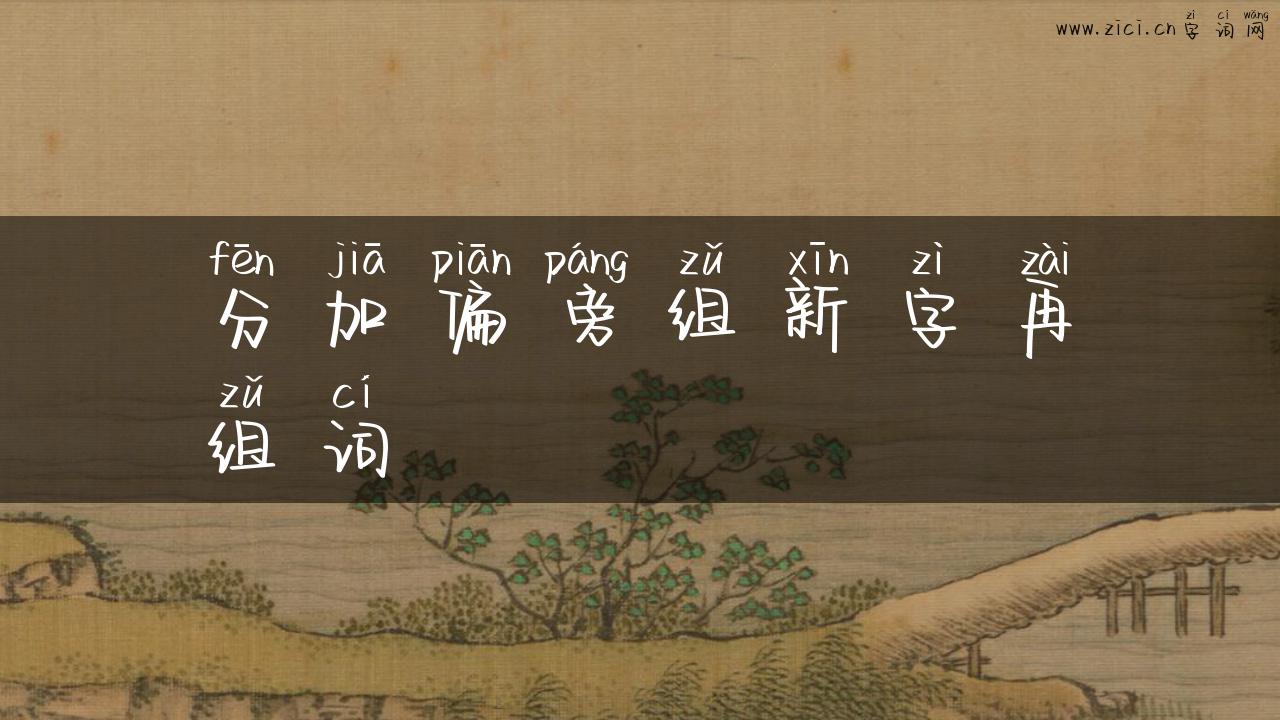 zì cí wǎng
www.zici.cn 字词网
fēn jiā piān páng zǔ xīn zì zài
分加偏旁组新字再
zǔ cí
组词